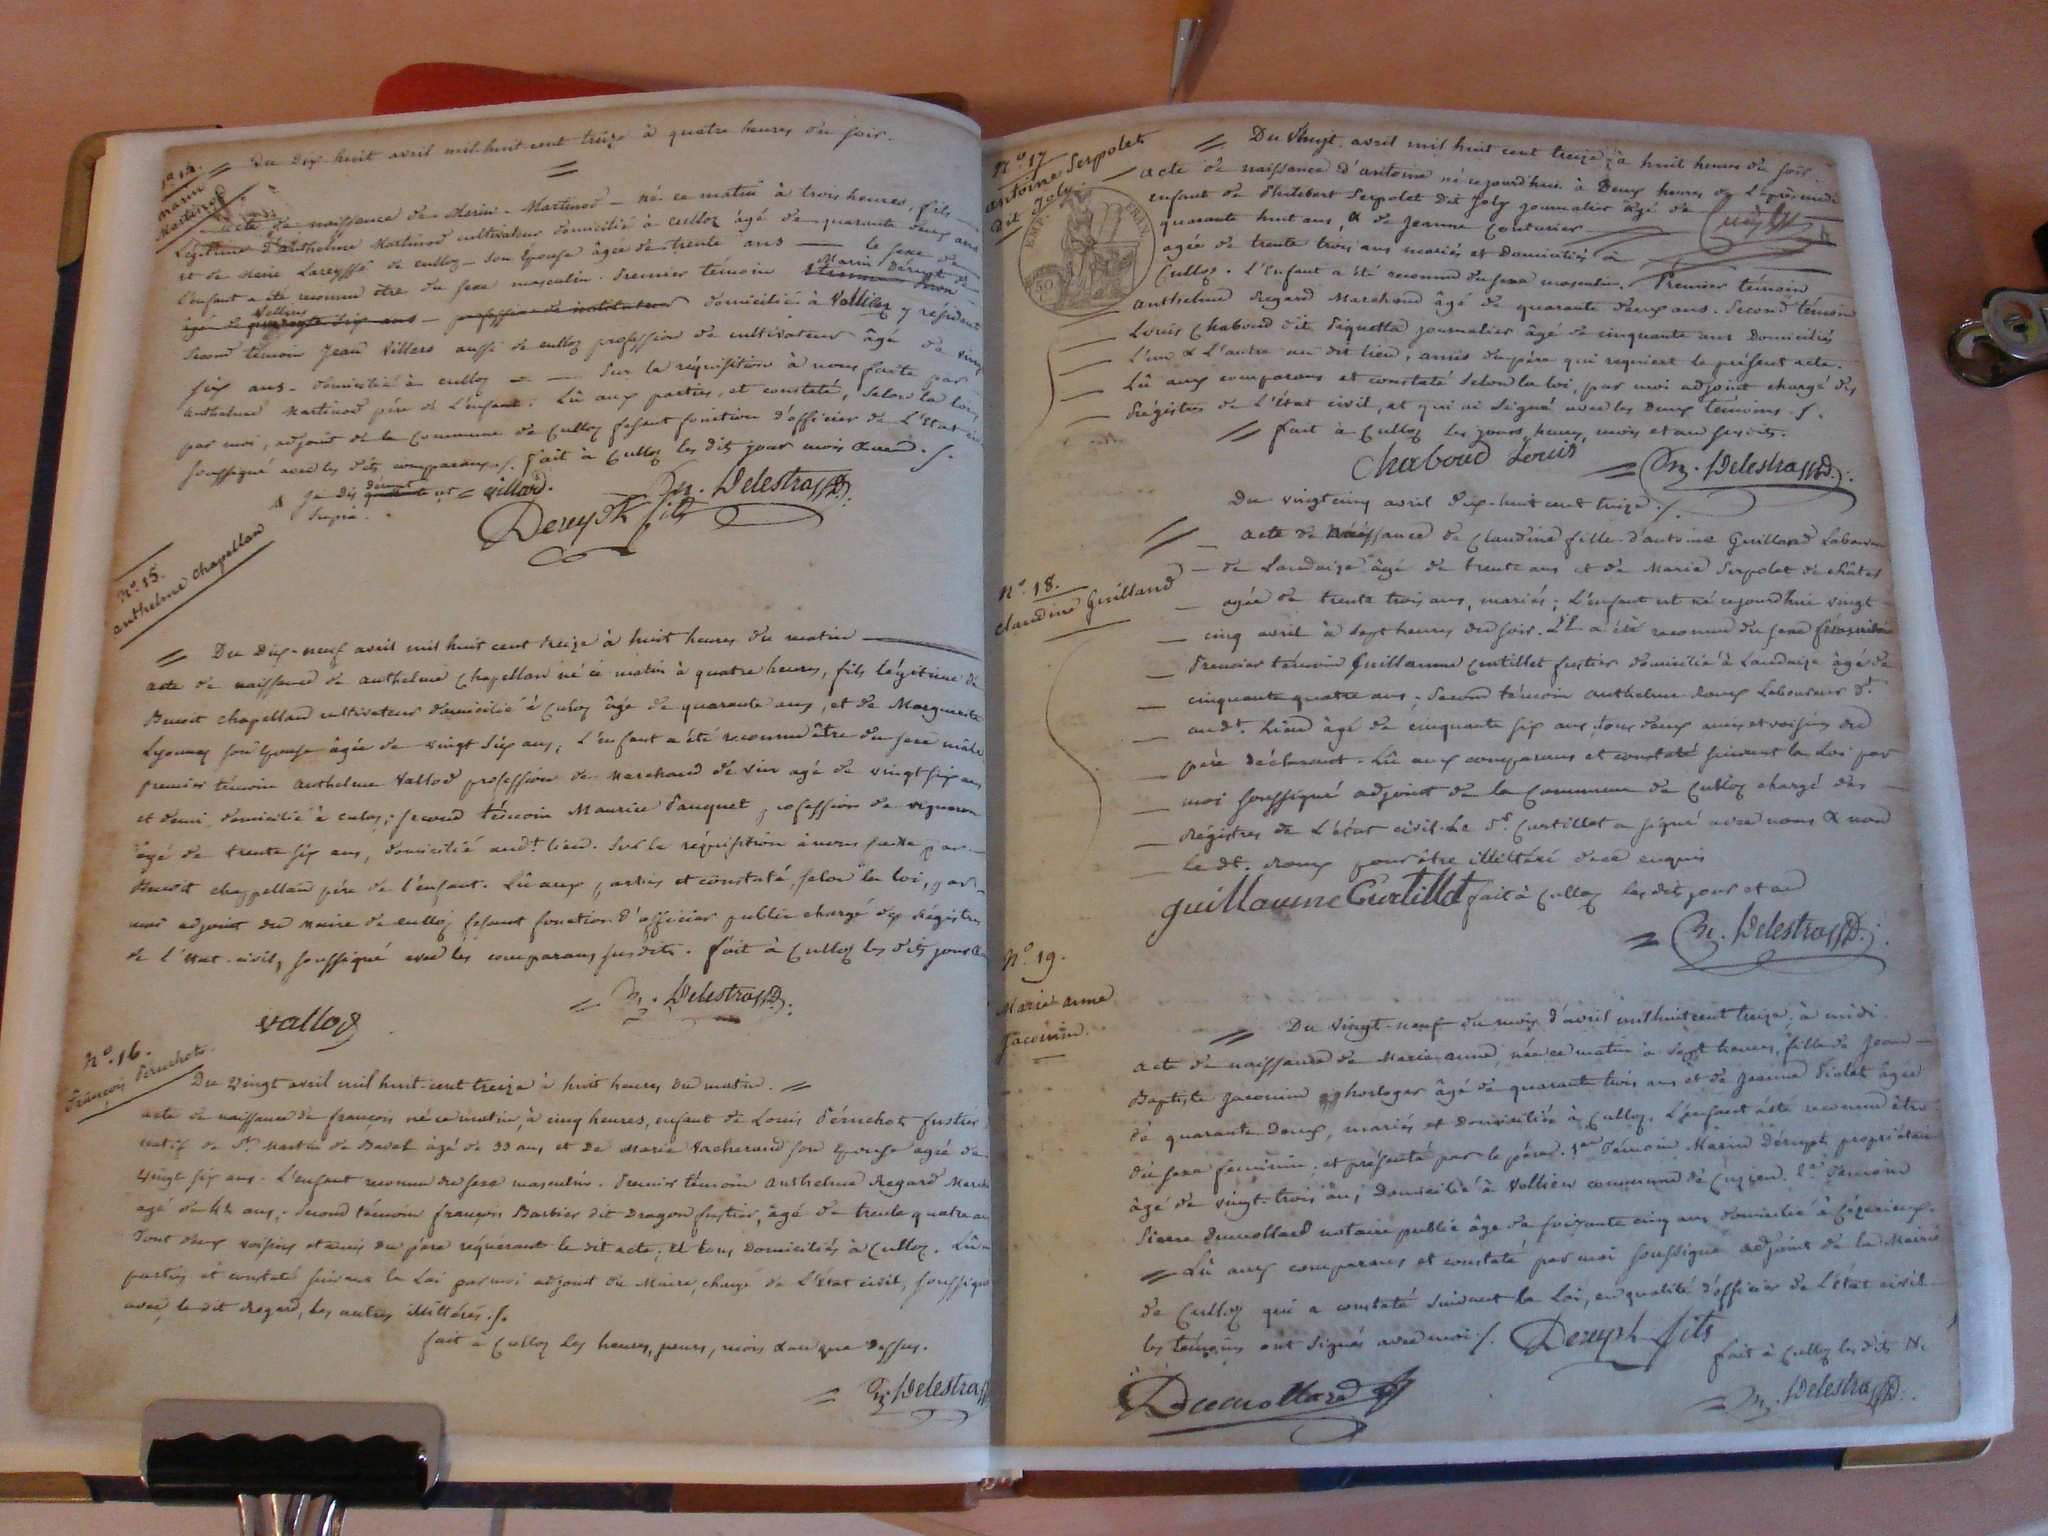 Du Dix-huit avril mil-huit-cent treize à quatre heures du soir.
Marin
Martinod
acte de naissance de Marin Martinod né ce matin à trois heures, fils
Légitime d'anthelme Martinod cultivateur domicilié à culloz âgé de quarante deux ans
et de Marie de culloz son Epouse âgée de trente ans le sexe de
l'enfant a été reconnu être du sexe masculin. Premier témoin Marin Dérupt
âgé de domicilié à Vollien y résident
Second témoin Jean Villard aussi de culloz profession de cultivateur âgé de vingt
six ans domicilié à culloz Sur la réquisition à nous faite par
anthelme Martinod père de L'enfant. Lû aux parties, et constaté, selon la loi,
par moi, adjoint de la Commune de Culloz fesant fonction d'officier de L'Etat
soussigné avec les dits comparans. fait à Culloz les dits jour mois
villard. Delestra
Derupt fils
N°. 15.
anthelme Chapelland
Du Dix-neuf avril mil huit cent treize à huit heures du matin
acte de naissance de anthelme Chapelland né ce matin à quatre heures, fils légitime de
Benoit Chapelland cultivateur domicilié à Culoz âgé de quarante ans, et de Marguerite
son Epouse âgée de vingt six ans; L'enfant a été reconnu être du sexe mâle
premier témoin anthelme Vallod profession de Marchand de vin agé de vingt six ans
et demi domicilié à culoz; second témoin Maurice Pauquet profession de vigneron
âgé de trente six ans, domicilié aud.t lieu. Sur la réquisition à nous faite par
Benoit chappelland père de l'enfant. Lû aux parties et constaté, selon la loi, par
moi adjoint du Maire de culloz fesant fonction d'officier public chargé des Régistres
de l'Etat-civil, soussigné avec les comparans susdits. fait à Culloz les dits jour
vallod
Delestra
N°. 16.
François Péruchot.
Du vingt avril mil huit-cent treize à huit heures du matin.
acte de naissance de françois né ce matin, à cinq heures, enfant de Louis Péruchot fustier
natif de St. Martin de Bavel âgé de 33 ans, et de Marie Vacherand son Epouse agée de
vingt six ans. L'enfant reconnu du sexe masculin. Premier témoin anthelme Regard March
agé de 42 ans; Second témoin françois Barbier dit Dragon fustier, âgé de trente quatre an
Tout deux voisins et amis du père réquérant le dit acte; et tous Domiciliés à Culloz. Lû
parties et constaté suivant la Loi par moi adjoint du Maire, chargé de L'état civil, soussigné
avec le dit Regard, les autres illittérés.
fait à Culloz les heures, jours, mois & an que dessus.
Delestra
N°. 17
antoine Serpolet
dit Joly.
EMP. FRAN.
50
Du vingt avril mil huit cent treize, à huit heures du soir
acte de naissance d'antoine né cejourd'hui à Deux heures de L'après midi
enfant de Philibert Serpolet dit Joly journalier âgé de
quarante huit ans, & de Jeanne Couturier
agée de trente trois ans mariés et Domiciliés à
Culloz. L'Enfant a été reconnu du sexe masculin. Premier témoin
anthelme Regard Marchand âgé de quarante deux ans. Second témoin
Louis Chaboud dit Piquetta journalier âgé de cinquante ans Domiciliés
L'un & L'autre au dit lieu, amis du père qui requiert le présent acte.
Lû aux comparans et constaté selon la loi, par moi adjoint chargé des
Régistres de L'état civil, et qui ai signé avec les Deux témoins.
fait à Culloz les jours, heures, mois et an susdits.
Chaboud Louis
Delestra
Du vingt cinq avril dix-huit cent treize.
N°. 18.
Claudine Guilland
acte de Naissance de Claudine fille d'antoine Guilland Laboureur
de Landaize âgé de trente ans et de Marie Serpolet de châtel
agée de trente trois ans, mariés; L'enfant est né cejourd'hui vingt
cinq avril à sept heures du soir. Il a été reconnu du sexe féminin
Premier témoin Guillaume Curtillet fustier domicilié à Landaize âgé de
cinquante quatre ans; Second témoin anthelme Roux Laboureur
aud.t Lieu âgé de cinquante six ans tous deux amis et voisins du
père déclarant. Lû aux comparans et constaté suivant la Loi par
moi soussigné adjoint de la Commune de Culloz chargé des
Régistres de L'état civil. Le Sr. Curtillet a signé avec nous & non
le dt. Roux pour être illittéré de ce enquis
guillaume Curtillet fait à Culloz les dit jour et an
Delestra
N°. 19.
Marie anne
Jacouin.
Du vingt-neuf du mois d'avril mil huit cent treize, à midi.
acte de naissance de Marie anne, née ce matin à sept heures, fille de Jean
Baptiste Jacouin horloger âgé de quarante trois ans et de Jeanne Piolat âgée
de quarante Deux, mariés et Domiciliés à Culloz. L'enfant a été reconnu être
du sexe féminin, et présenté par le père. 1er Témoin Marin Dérupt, propriétaire
âgé de vingt-trois an, Domicilié à Vollien commune de Cuzieu. 2e. Témoin
Pierre Dumollard notaire public âge de soixante cinq ans domicilié à Ceizerieux.
Lû aux comparans et constaté par moi soussigné adjoint de la Mairie
de Culloz qui a constaté Suivant la Loi, en qualité d'officier de L'état civil
les témoins ont signés avec moi. Derupt fils
fait à Culloz les dits
Dumollard
Delestra